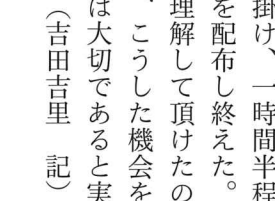 掛け、一時間半程
を配布し終えた。
理解して頂けたの
、こうした機会を
は大切であると実
（吉田吉里　記）